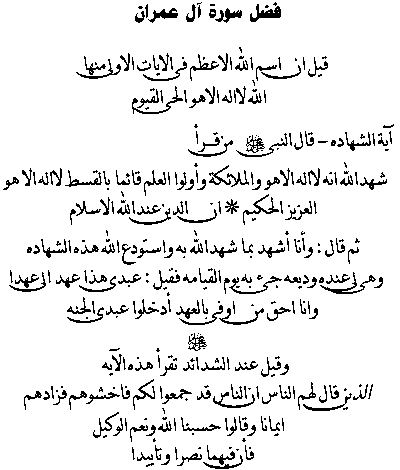 فضل سورة آل عمران
قيل ان اسم الله الاعظم فى الايات الاولى منها
الله لا اله الا هو الحى القيوم
آية الشهاده – قال النبى ﷺ من قرأ
شهد الله انه لا اله الا هو والملائكة وأولوا العلم قائما بالقسط لا اله الا هو
العزيز الحكيم * ان الدين عند الله الاسلام
ثم قال : وأنا أشهد بما شهد الله به واستودع الله هذه الشهاده
وهى لى عنده وديعه جىء به يوم القيامه فقيل : عبدى هذا عهد الى عهدا
وانا احق من اوفى بالعهد أدخلوا عبدى الجنه
ﷺ
وقيل عند الشدائد تقرأ هذه الآيه
الذين قال لهم الناس ان الناس قد جمعوا لكم فاخشوهم فزادهم
ايمانا وقالوا حسبنا الله ونعم الوكيل
فأن فيهما نصرا وتأييدا